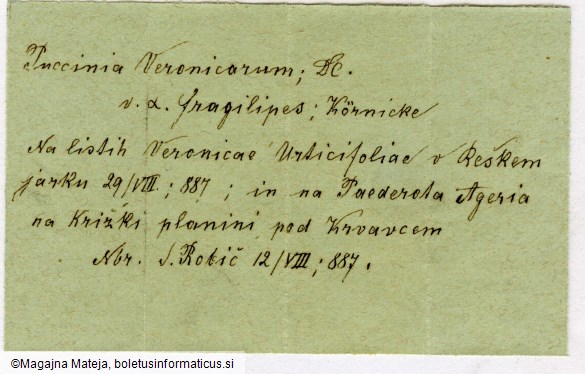 Puccinia Veronicarum; DC.
v. α. fragilipes; Körnicke
Na listih Veronicae Urticifoliae v Reškem
jarku 29/VIII.; 887; in na Paederota Ageria
na Križki planini pod Krvavcem
Nbr. S. Robič 12/VIII; 887.
©Magajna Mateja, boletusinformaticus.si